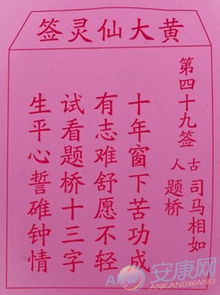 黄大仙灵签
第四十九签
古人
司马相如
题桥
十年窗下苦功成
有志难舒愿不轻
试看题桥十三字
生平心誓碓钟情
安康网